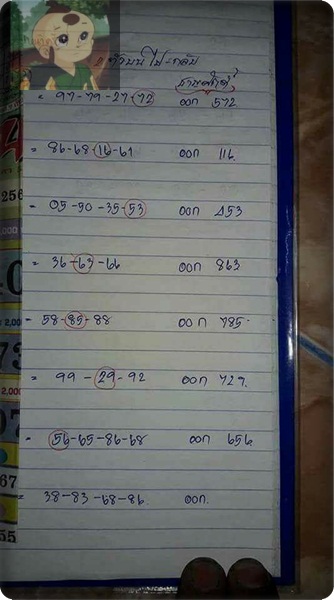 ตัวบนไป-กลับ
= 97-79-27-72 ออก 572
= 86-68-16-61 ออก 116
= 05-50-35-53 ออก 453
= 36-63-66 ออก 863
= 58-85-88 ออก 785.
= 99-29-92 ออก 729.
= 56-65-86-68 ออก 656
= 38-83-68-86 ออก.
256
67
55